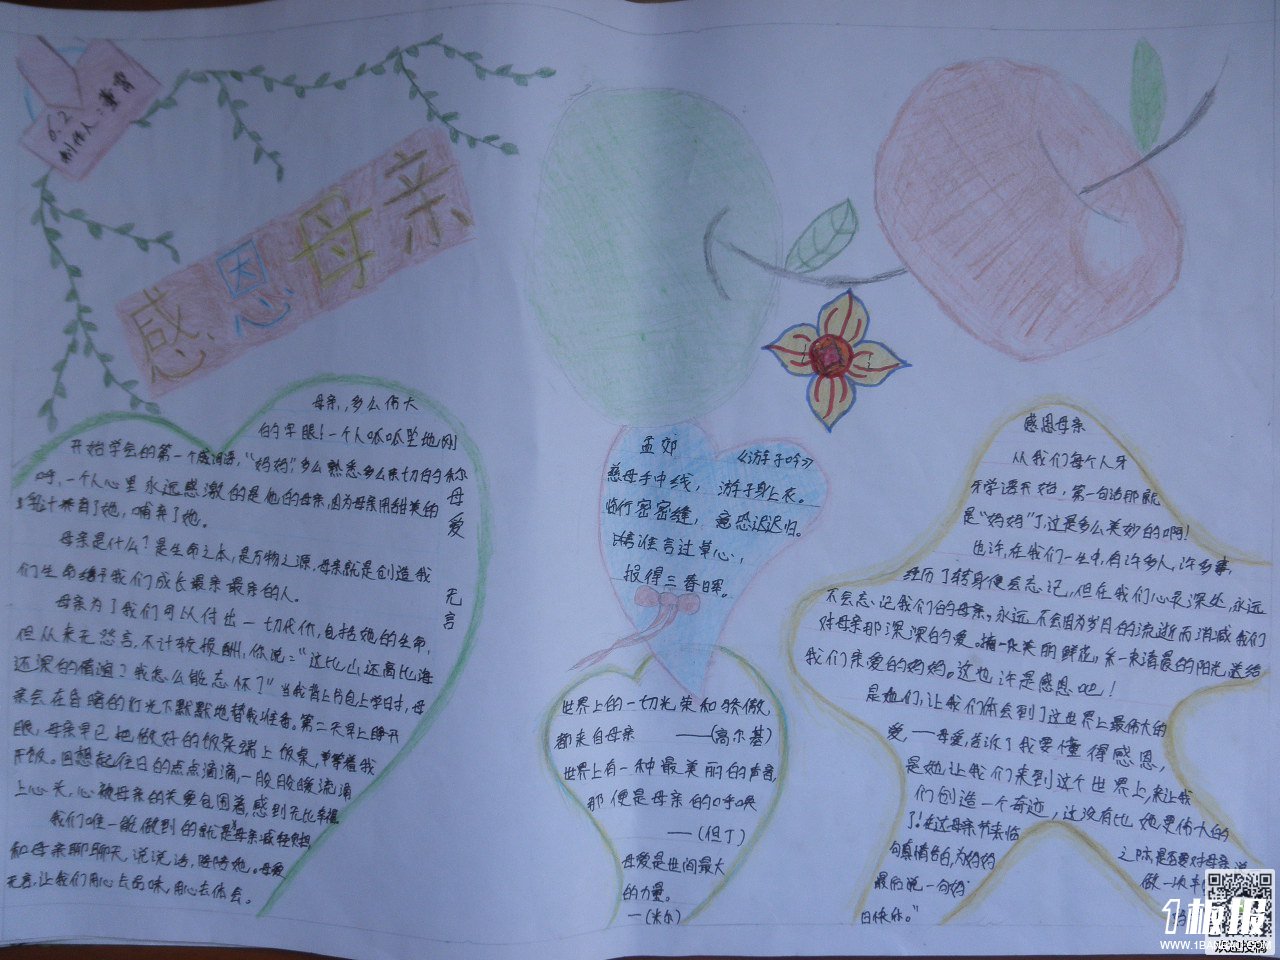 6.2
制作人：
感恩母亲
母亲,多么伟大
的字眼！一个人呱呱坠地,刚
开始学会的第一个感词语,“妈妈”,多么熟悉多么亲切的称
呼,一个人心里永远感激的是他的母亲,因为母亲用甜美的
乳汁养育了她,哺养了她。
母亲是什么？是生命之本,是万物之源,母亲就是创造我
们生命给予我们成长最亲最亲的人。
母亲为了我们可以付出一切代价,包括她的生命,
但从来无怨言,不计较报酬,你说：“这比山还高比海
还深的情谊？我怎么能忘怀了”当我背上书包上学日时,母
亲会在昏暗的灯光下默默地替我准备。第二天早上睁开
眼,母亲早已把做好的饭菜端上饭桌,等着我
开饭。回想起往日的点点滴滴,一股股暖流涌
上心头,心被母亲的关爱包围着,感到无比幸福
我们唯一能做到的就是母亲减轻负担
和母亲聊聊天,说说话,陪陪她。母爱
无言,让我们用心去品味,用心去体会。
母爱
无言
孟郊 《游子吟》
慈母手中线， 游子身上衣。
临行密密缝， 意恐迟迟归。
谁言寸草心，
报得三春晖。
世界上的一切光荣和骄傲,
都来自母亲 ——（高尔基）
世界上有一种最美丽的声音,
那便是母亲的呼唤
——（但丁）
母爱是世间最大
的力量。
—（米尔）
感恩母亲
从我们每个人牙
牙学语开始,第一句话那就
是“妈妈”了,这是多么美妙的啊!
也许,在我们一生中,有许多人,许多事,
经历了转身便会忘记,但在我们心灵深处,永远
不会忘记我们的母亲,永远不会因为岁月的流逝而消减我们
对母亲那深深的爱。摘一朵美丽鲜花,采一束清晨的阳光送给
我们亲爱的妈妈。这也许是感恩吧！
是她们,让我们体会到了这世界上最伟大的
爱——母爱,告诉了我要懂得感恩,
是她,让我们来到这个世界上,来让我
们创造一个奇迹,这没有比她更伟大的
了！在这母亲节来临
之际是否要对母亲说
句真情告白,为妈妈
做一次
最后说一句妈
日快乐。”
1板报
WWW.1BANBAO.COM
欢迎投稿